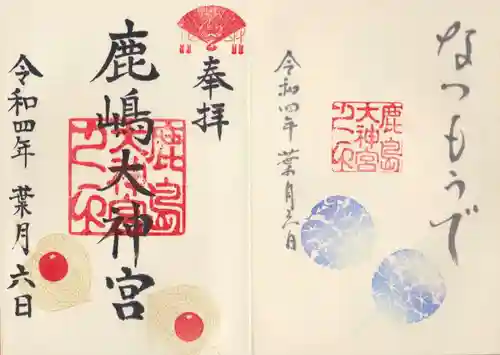 奉拝
鹿嶋大神宮
令和四年 葉月 六日
鹿島
大神宮
なつもうで
令和四年 葉月六日
鹿島
大神宮